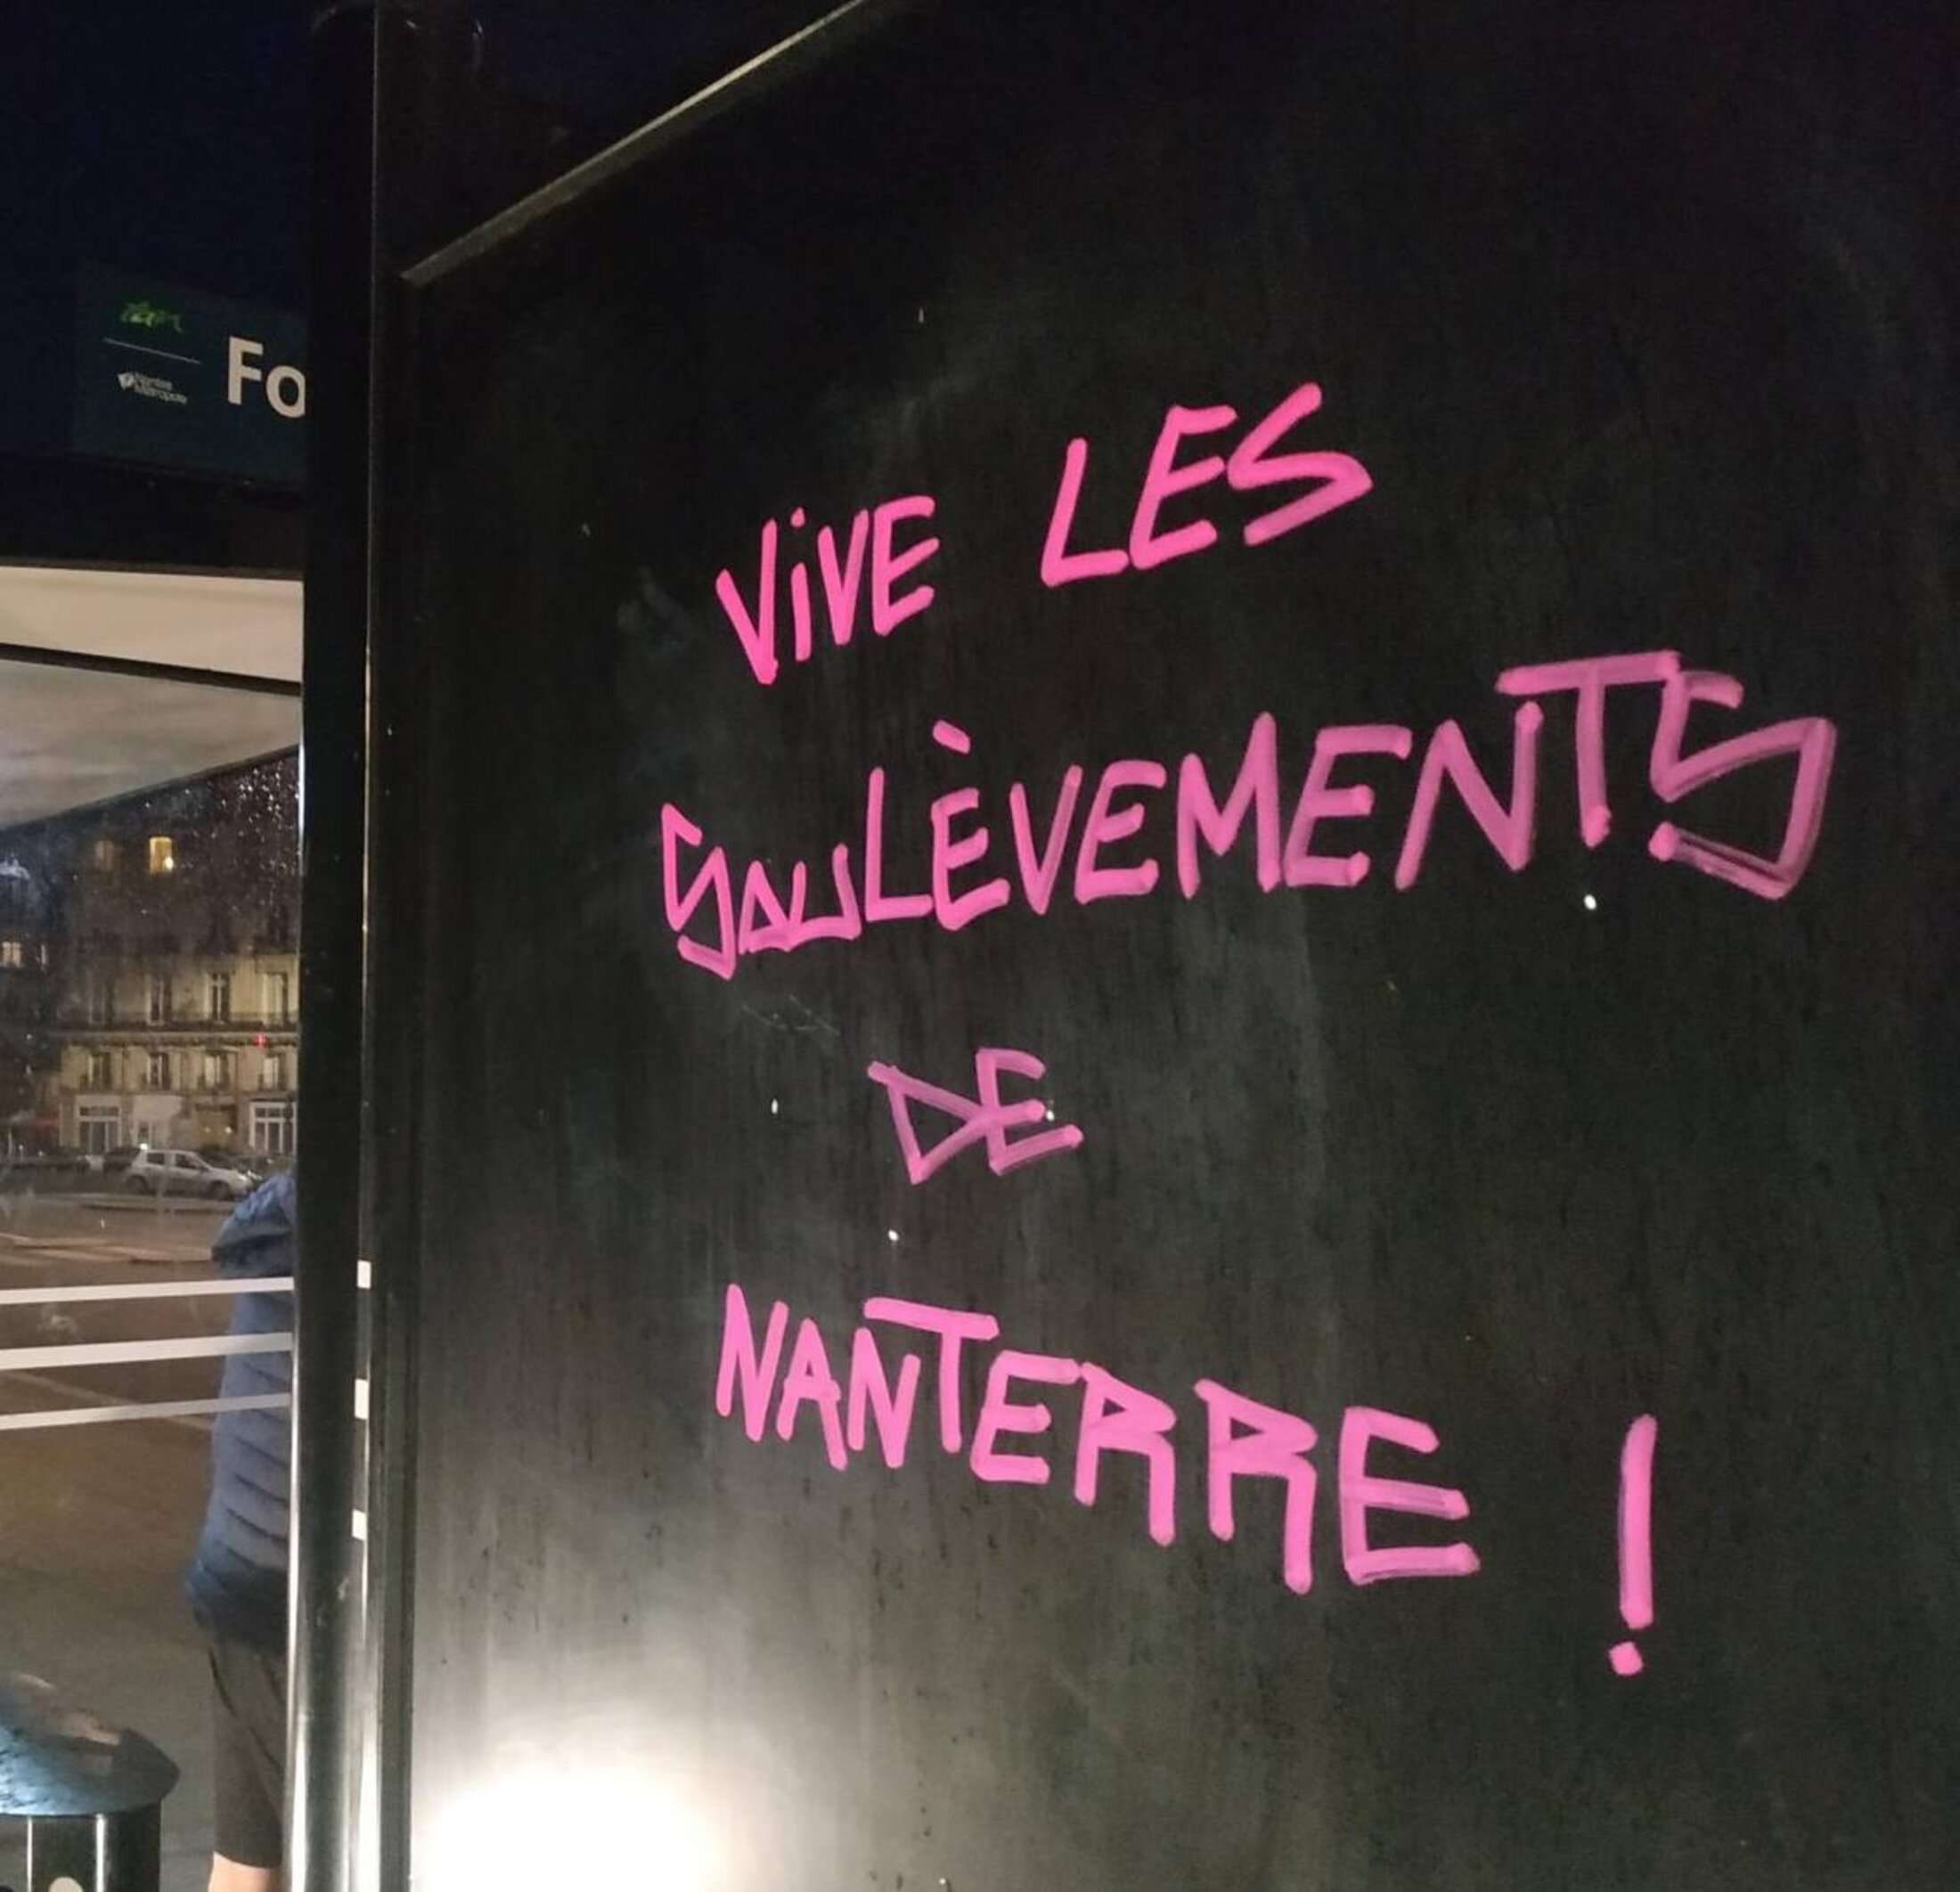 tan
Nantes
Métropole
Fo
ViVE LES
SOULÈVEMENTS
DE
NANTERRE !